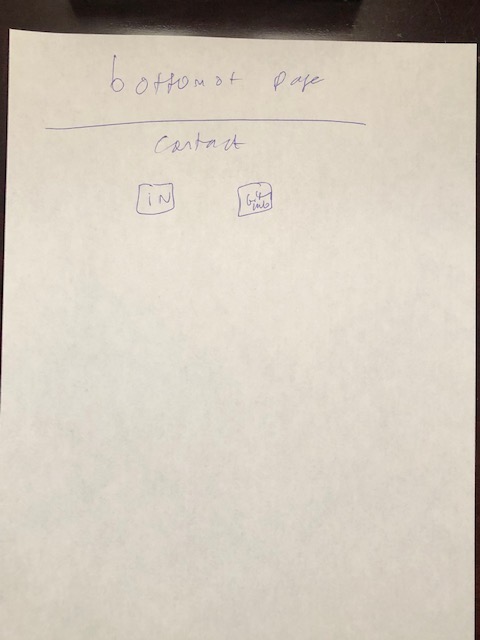 bottom of page
Contact
iN
Git
Hub